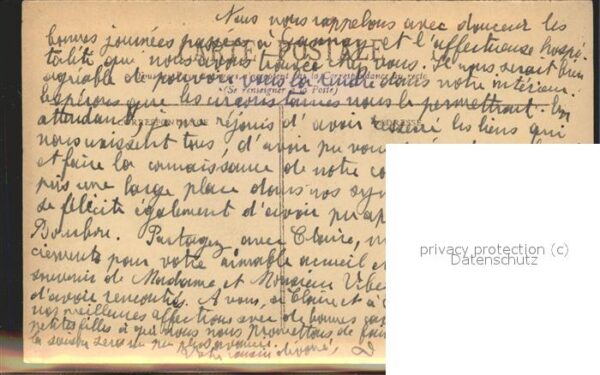 Nous nous rappelons avec douceur les
bonnes journées passées à et l'affectueuse hospi-
talité que nous avons trouvée chez vous. Il nous serait bien
agréable de pouvoir vous la rendre dans notre intérieur.
CARTE POSTALE
(Se renseigner à la Poste)
Espérons que les circonstances nous le permettront. En
attendant je me réjouis d'avoir resserré les liens qui
CORRESPONDANCE ADRESSE
nous unissent tous, d'avoir pu
et faire la connaissance de notre
pris une large place dans nos
se félicite également d'avoir pu
Bourbon. Partagez avec Claire,
ciements pour votre aimable accueil et
souvenir de Madame et Monsieur
d'avoir rencontrés. A vous, à Claire et à
nos meilleures affections avec de bonnes
petites filles à qui nous nous promettons de
la saison sera un peu plus avancée.
Votre cousin dévoué,
privacy protection (c)
Datenschutz